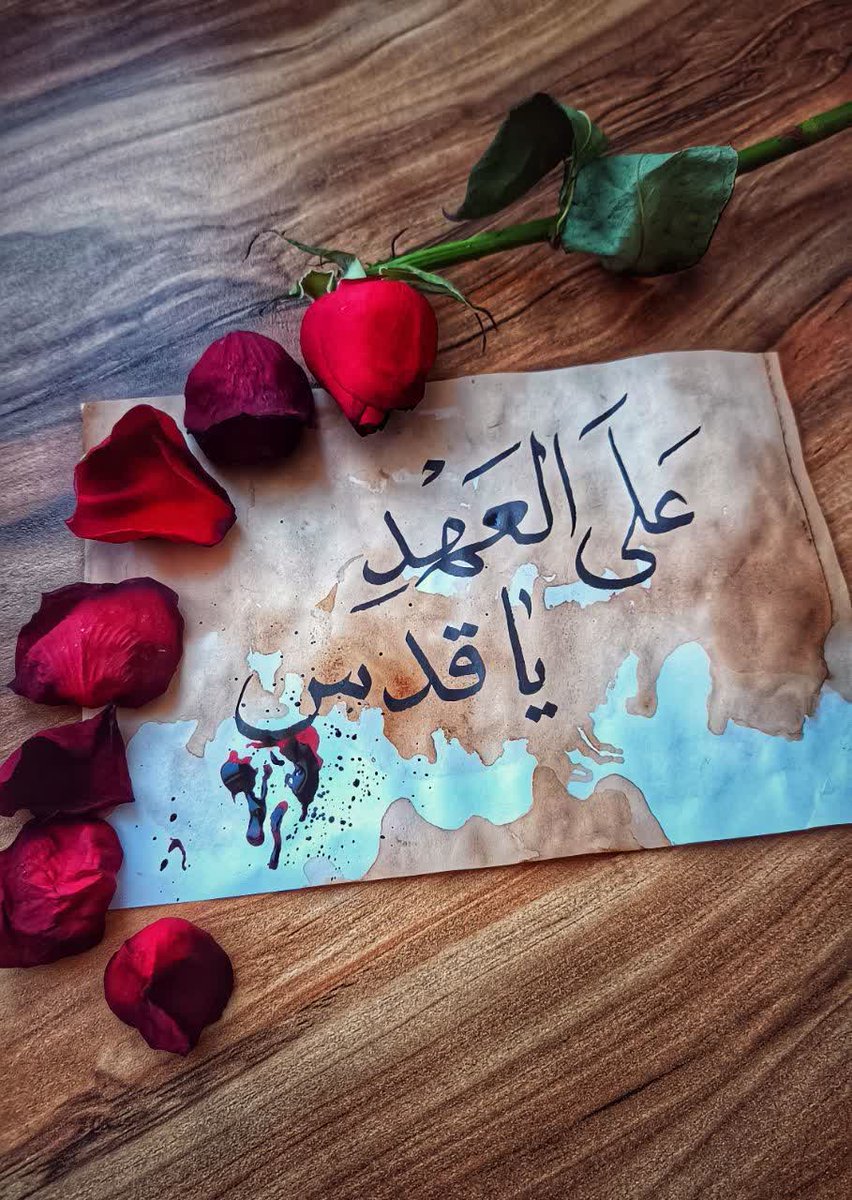 عَلَى العَهْدِ
يا قدس